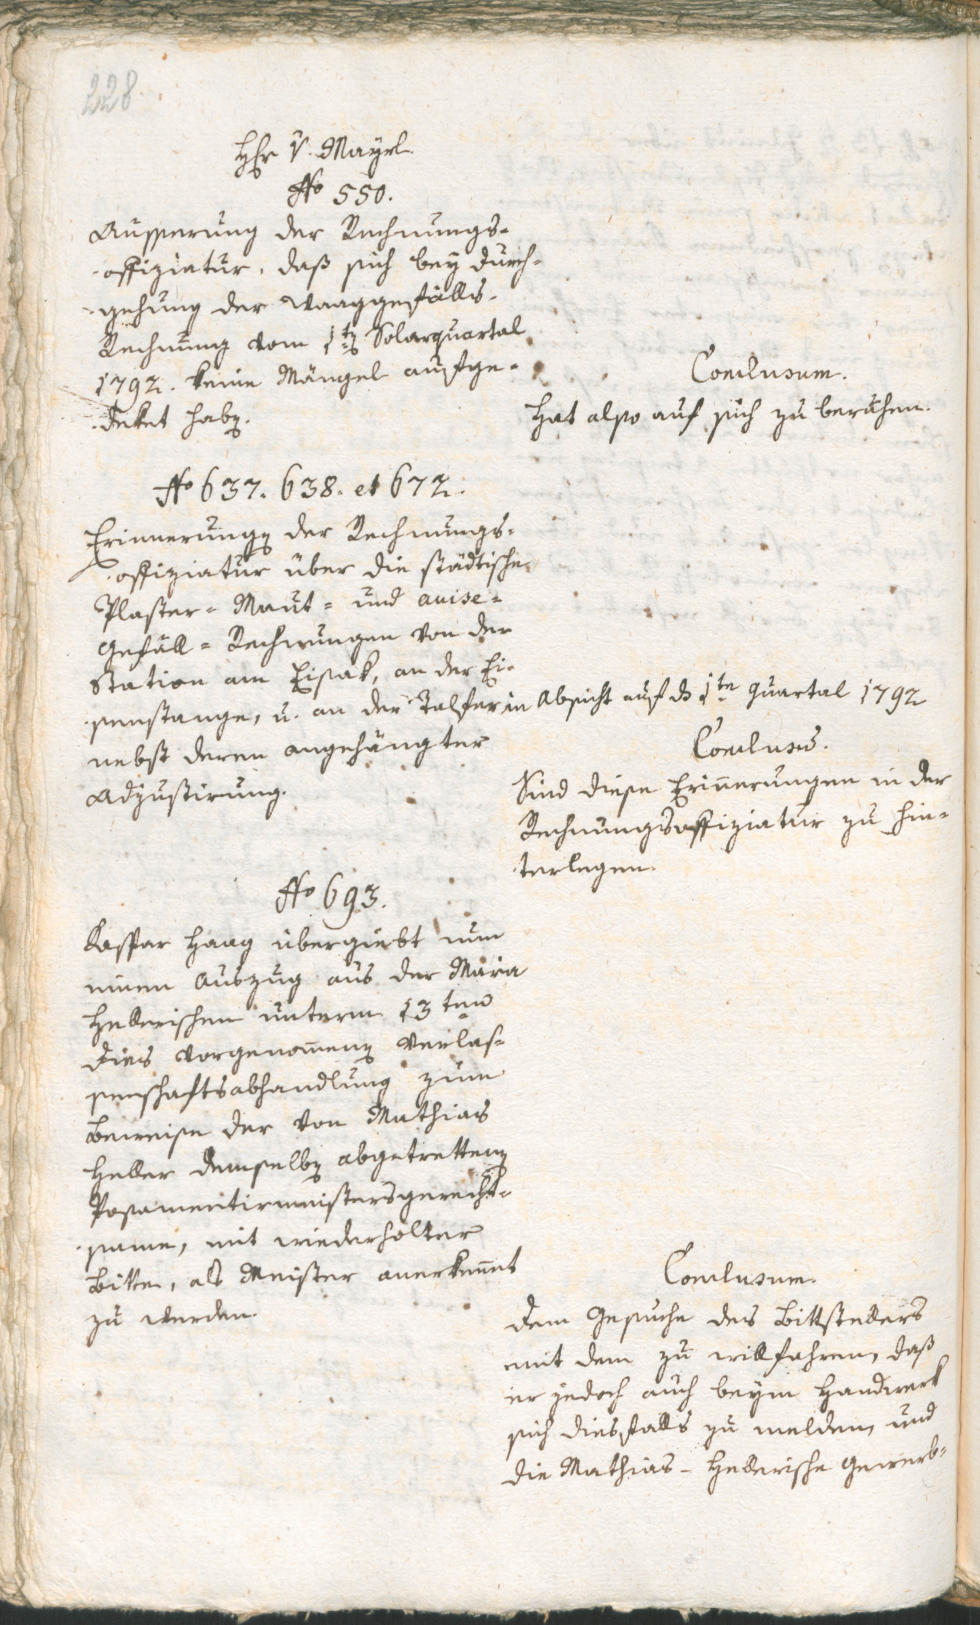 228
Hr. V. Mayrl.
No 550.
Äusserung der Rechnungs-
offiziatur, daß sich bey Durch-
gehung der Waaggefälls-
Rechnung vom 1ten Solarquartal
1792. keine Mängel aufge-
deket haben.
Conclusum.
Hat also auf sich zu beruhen.
No 637. 638. et 672.
Erinnerungen der Rechnungs-
offiziatur über die städtische
Plaster- Maut- und avise-
Gefäll- Rechnungen von der
Station am Eisak, an der Ei-
senstange, u. an der Talfer in Absicht auf ds 1te Quartal 1792
nebst deren angehängter
Adjustirung.
Conclusum.
Sind diese Erinerungen in der
Rechnungsoffiziatur zu hin-
terlegen.
No 693.
Kaspar Haag übergiebt nun
einen Auszug aus der Maria
Hellerischen unterm 13ten
dies vorgenomenen Verlas-
senschaftsabhandlung zum
Beweise der von Mathias
Heller demselben abgetrettenen
Posamentirmeistersgerecht-
same, mit wiederholter
Bitte, als Meister anerkennt
zu werden.
Conclusum.
Dem Gesuche des Bittstellers
mit dem zu willfahren, daß
er jedoch auch beym Handwerk
sich diesfalls zu melden, und
die Mathias-Hellerische Gewerb-